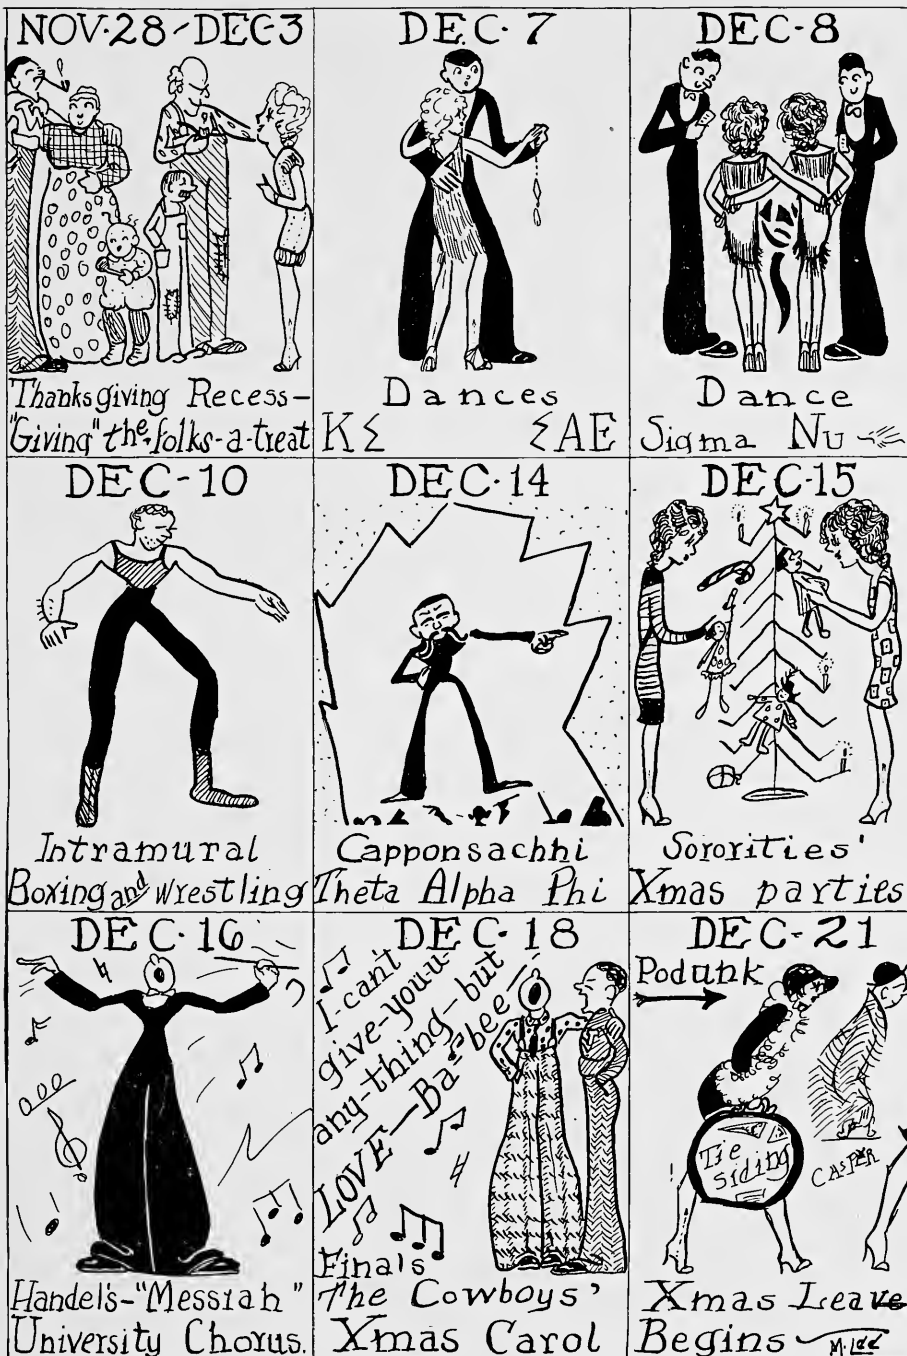 NOV·28-DEC·3
Thanksgiving Recess-
"Giving" the folks-a-treat
DEC·7
Dances
KΣ ΣAE
DEC-8
Dance
Sigma Nu
DEC-10
Intramural
Boxing and Wrestling
DEC·14
Capponsachhi
Theta Alpha Phi
DEC-15
Sororities'
Xmas parties
DEC·16
Handel's-"Messiah"
University Chorus.
DEC·18
I-can't
give-you-u-
any-thing-but
LOVE-Ba-bee-
Finals
The Cowboys'
Xmas Carol
DEC-21
Podunk
Tie
siding
CASPER
Xmas Leave
Begins
M. Lee